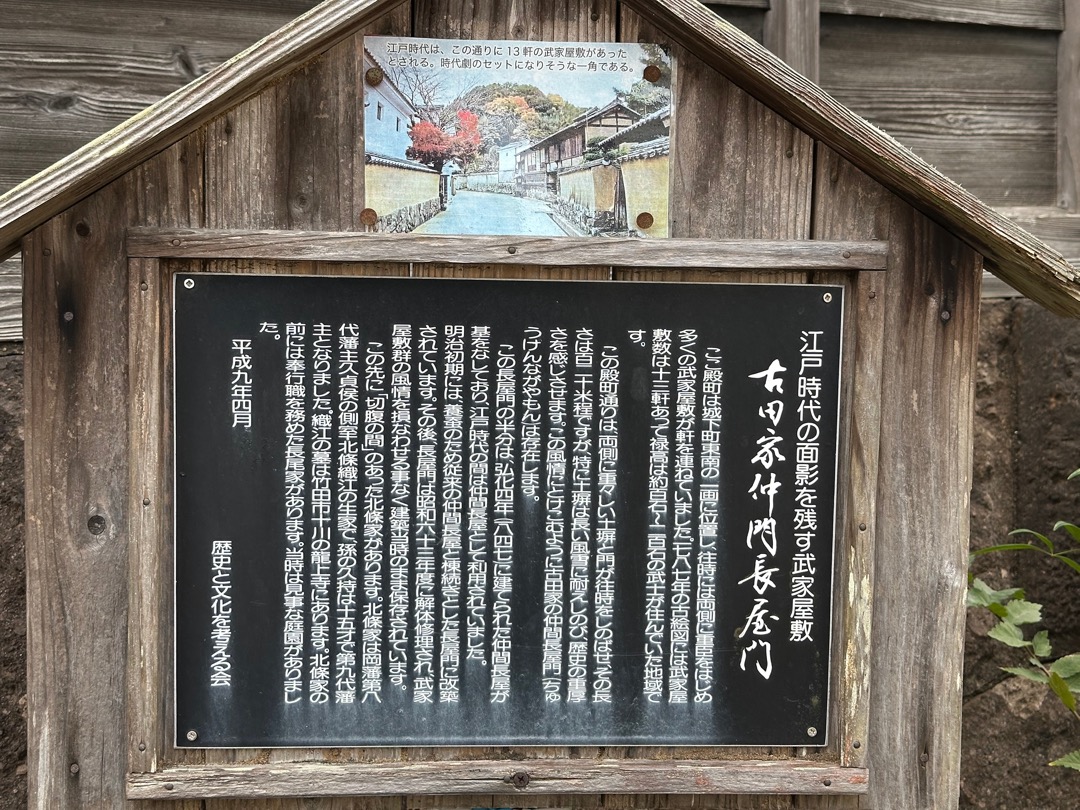 江戸時代は、この通りに13軒の武家屋敷があった
とされる。時代劇のセットになりそうな一角である。
江戸時代の面影を残す武家屋敷
古田家仲門長屋門
ここ殿町は城下町東南の一画に位置し、往時には両側に重臣をはじめ
多くの武家屋敷が軒を連ねていました。一七八七年の古絵図には武家屋
敷数は十三軒あって禄高は約百石〜二百石の武士が住んでいた地域で
す。
この殿町通りは、両側に重々しい土塀と門が往時をしのばせその長
さは百二十米程ですが、特に土塀は長い風雪に耐えしのび歴史の重厚
さを感じさせます。この風情にとけこむように古田家の仲間長屋門(ちゅ
うげんながやもん)は存在します。
この長屋門の半分は、弘化四年(一八四七)に建てられた仲間長屋が
基をなしており、江戸時代の間は仲間長屋として利用されていました。
明治初期には、養蚕のため従来の仲間長屋と棟続きとした長屋門に改築
されています。その後、長屋門は昭和六十三年度に解体修理され、武家
屋敷群の風情を損なわせる事なく、建築当時のまま保存されています。
この先に「切腹の間」のあった北條家があります。北條家は岡藩第八
代藩主久貞侯の側室北條織江の生家で、孫の久持は十五才で第九代藩
主となりました。織江の墓は竹田市十川の龍上寺にあります。北條家の
前には奉行職を務めた長尾家があります。当時は見事な庭園がありまし
た。
平成九年四月
歴史と文化を考える会